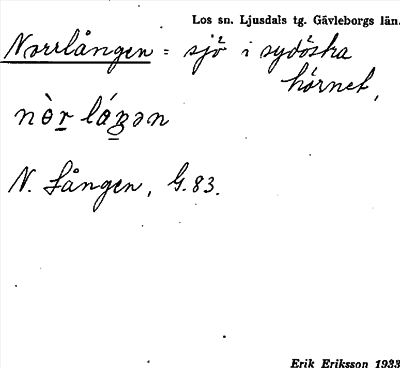 Los sn. Ljusdals tg. Gävleborgs län.
Norrlången = sjö i sydöstra
hörnet,
nòr láŋən
N. Lången, G. 83.
Erik Eriksson 1933